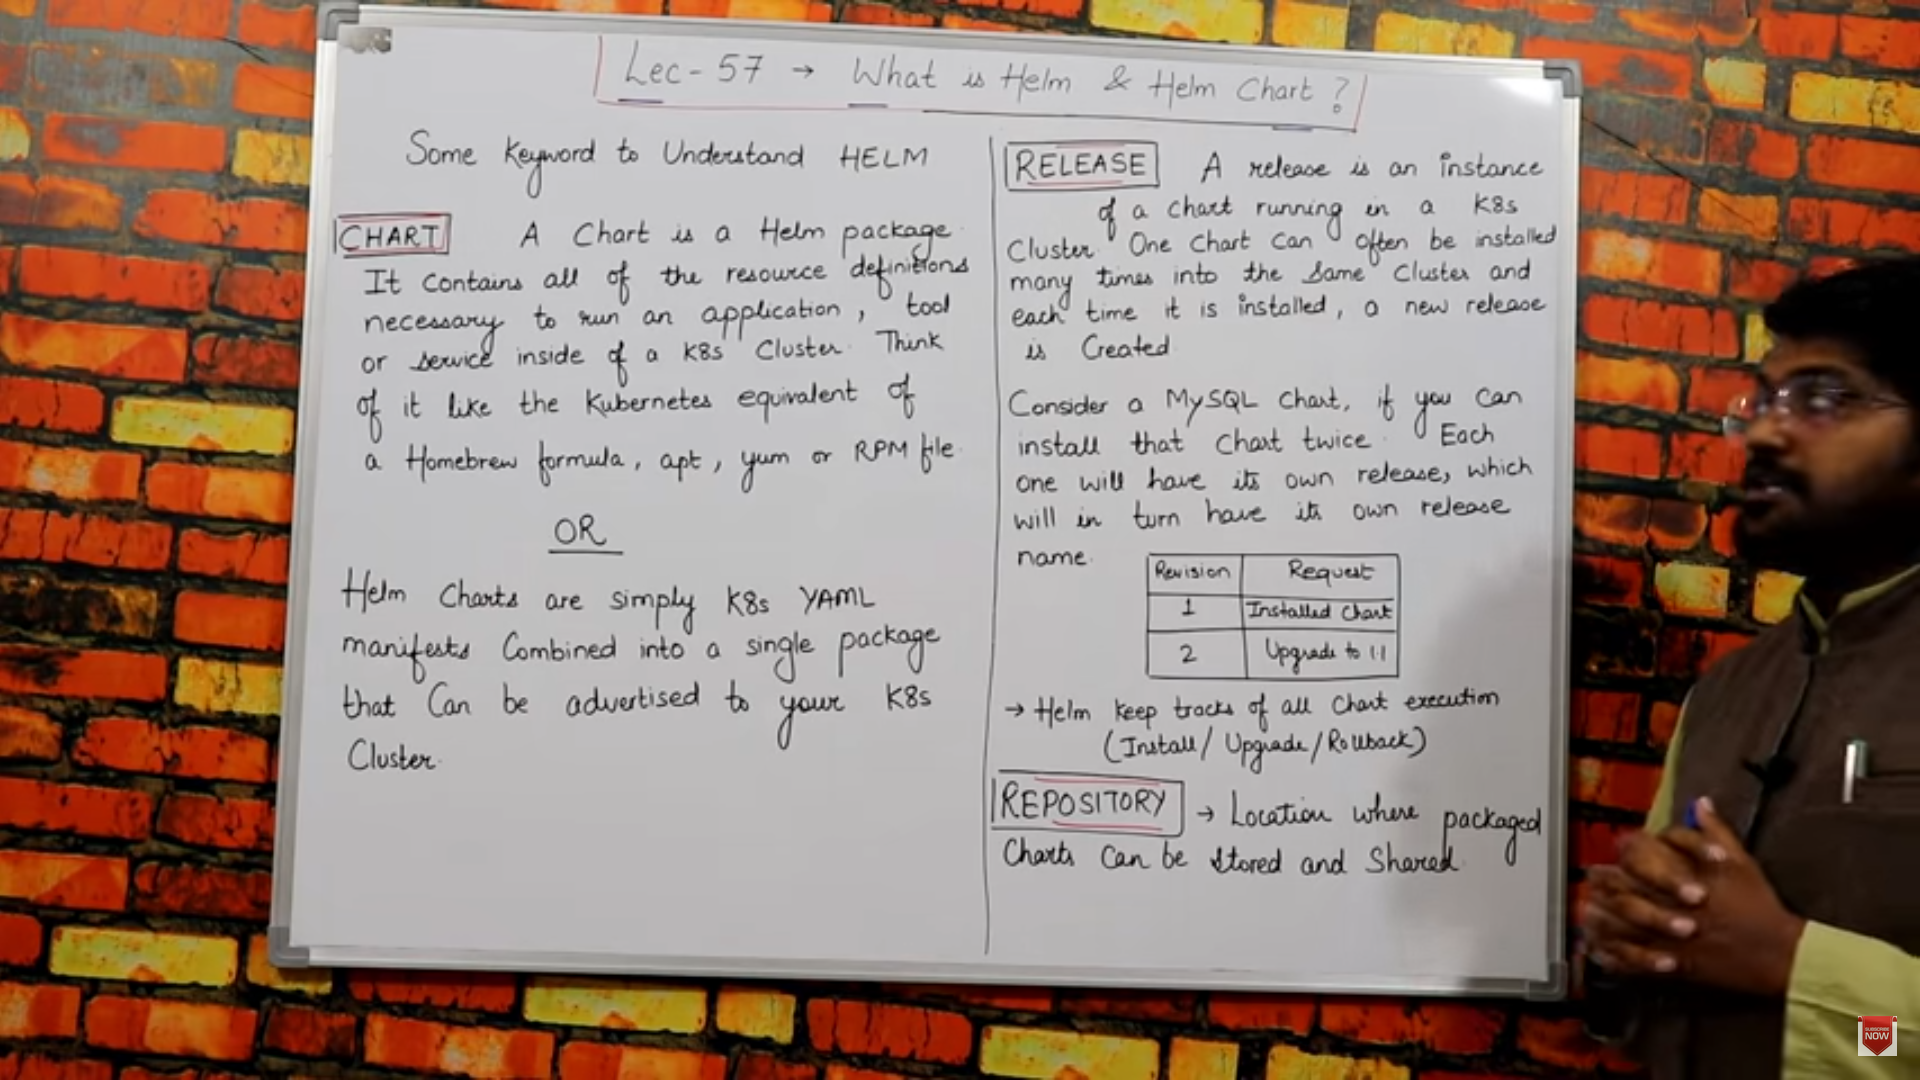 Lec-57 → What is Helm & Helm Chart ?
Some Keyword to Understand HELM
CHART A Chart is a Helm package.
It contains all of the resource definitions
necessary to run an application, tool
or service inside of a K8s Cluster. Think
of it like the Kubernetes equivalent of
a Homebrew formula, apt, yum or RPM file.
OR
Helm Charts are simply K8s YAML
manifests Combined into a single package
that Can be advertised to your K8s
Cluster.
RELEASE A release is an instance
of a chart running in a K8s
Cluster. One chart can often be installed
many times into the same Cluster and
each time it is installed, a new release
is Created.
Consider a MySQL chart, if you can
install that chart twice. Each
one will have its own release, which
will in turn have its own release
name.
Revision Request
1 Installed Chart
2 Upgrade to 1.1
→ Helm keep tracks of all chart execution
(Install/ Upgrade/Rollback)
REPOSITORY → Location where packaged
Charts Can be stored and Shared.
SUBSCRIBE
NOW